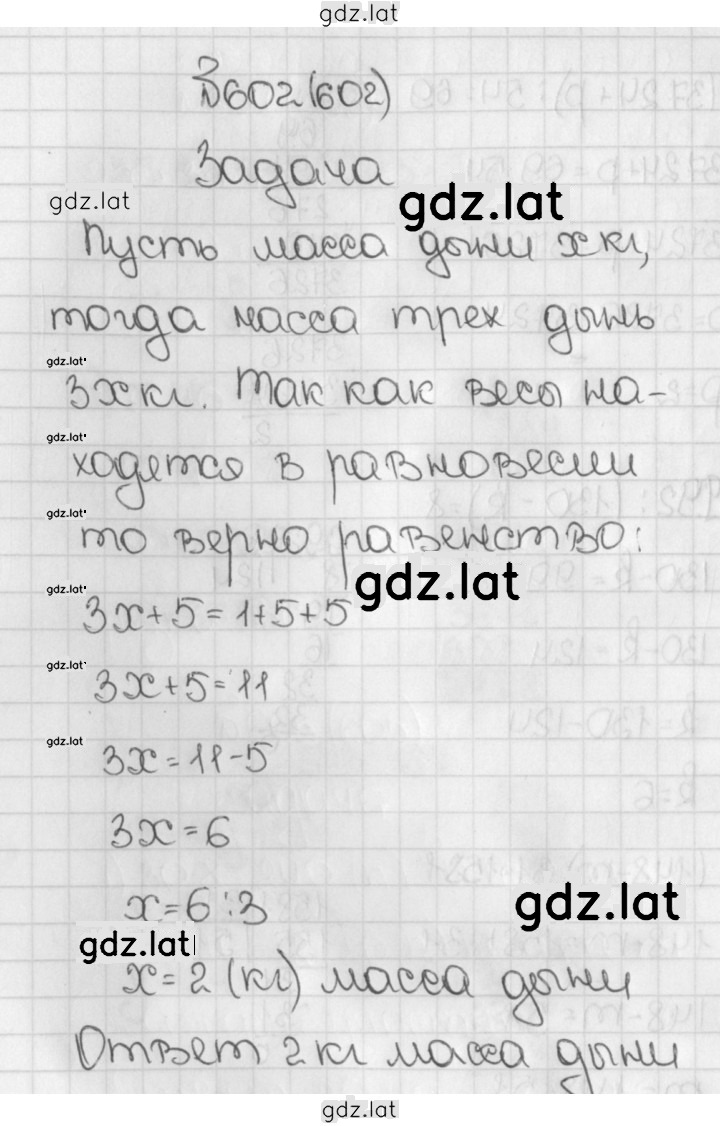 gdz.lat
№602 (602)
Задача
gdz.lat
gdz.lat
Пусть масса дыни x кг,
тогда масса трех дынь
gdz.lat
3x кг. Так как весы на-
gdz.lat
ходятся в равновесии
gdz.lat
то верно равенство:
gdz.lat
gdz.lat
3x+5=1+5+5
gdz.lat
3x+5=11
gdz.lat
3x=11-5
3x=6
x=6:3
gdz.lat
gdz.lat
x=2 (кг) масса дыни
Ответ 2 кг масса дыни
gdz.lat